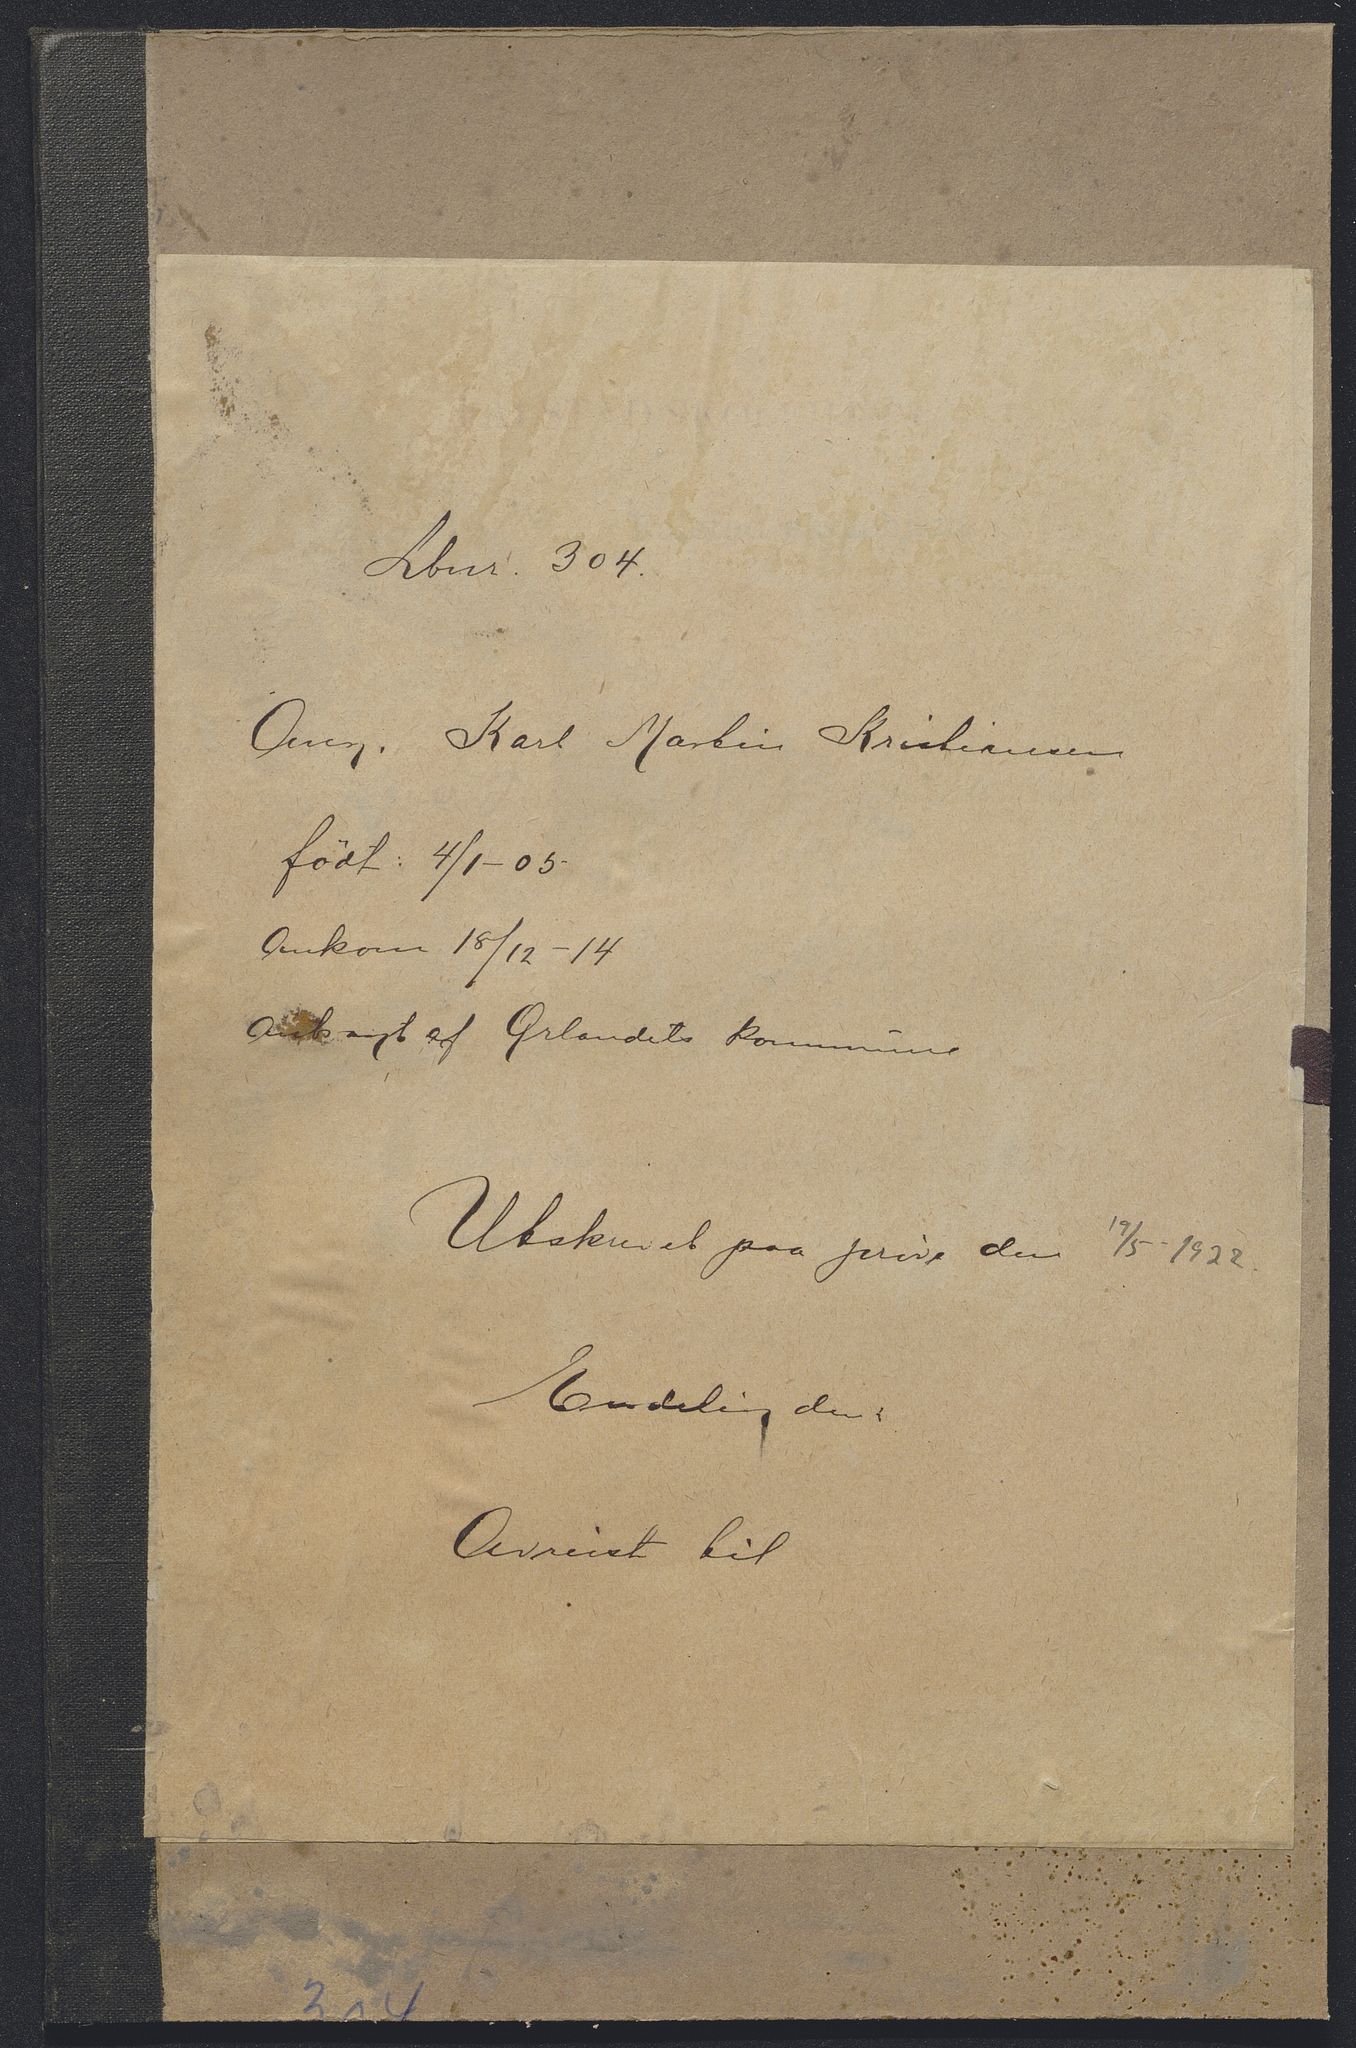 Lbnr. 304.
Ang. Karl Martin Kristiansen
født: 4/1-05
Ankom 18/12-14
Anbragt af Ørlandets kommune
Utskrevet paa prøve den 19/5-1922.
Endelig den:
Avreist til
304